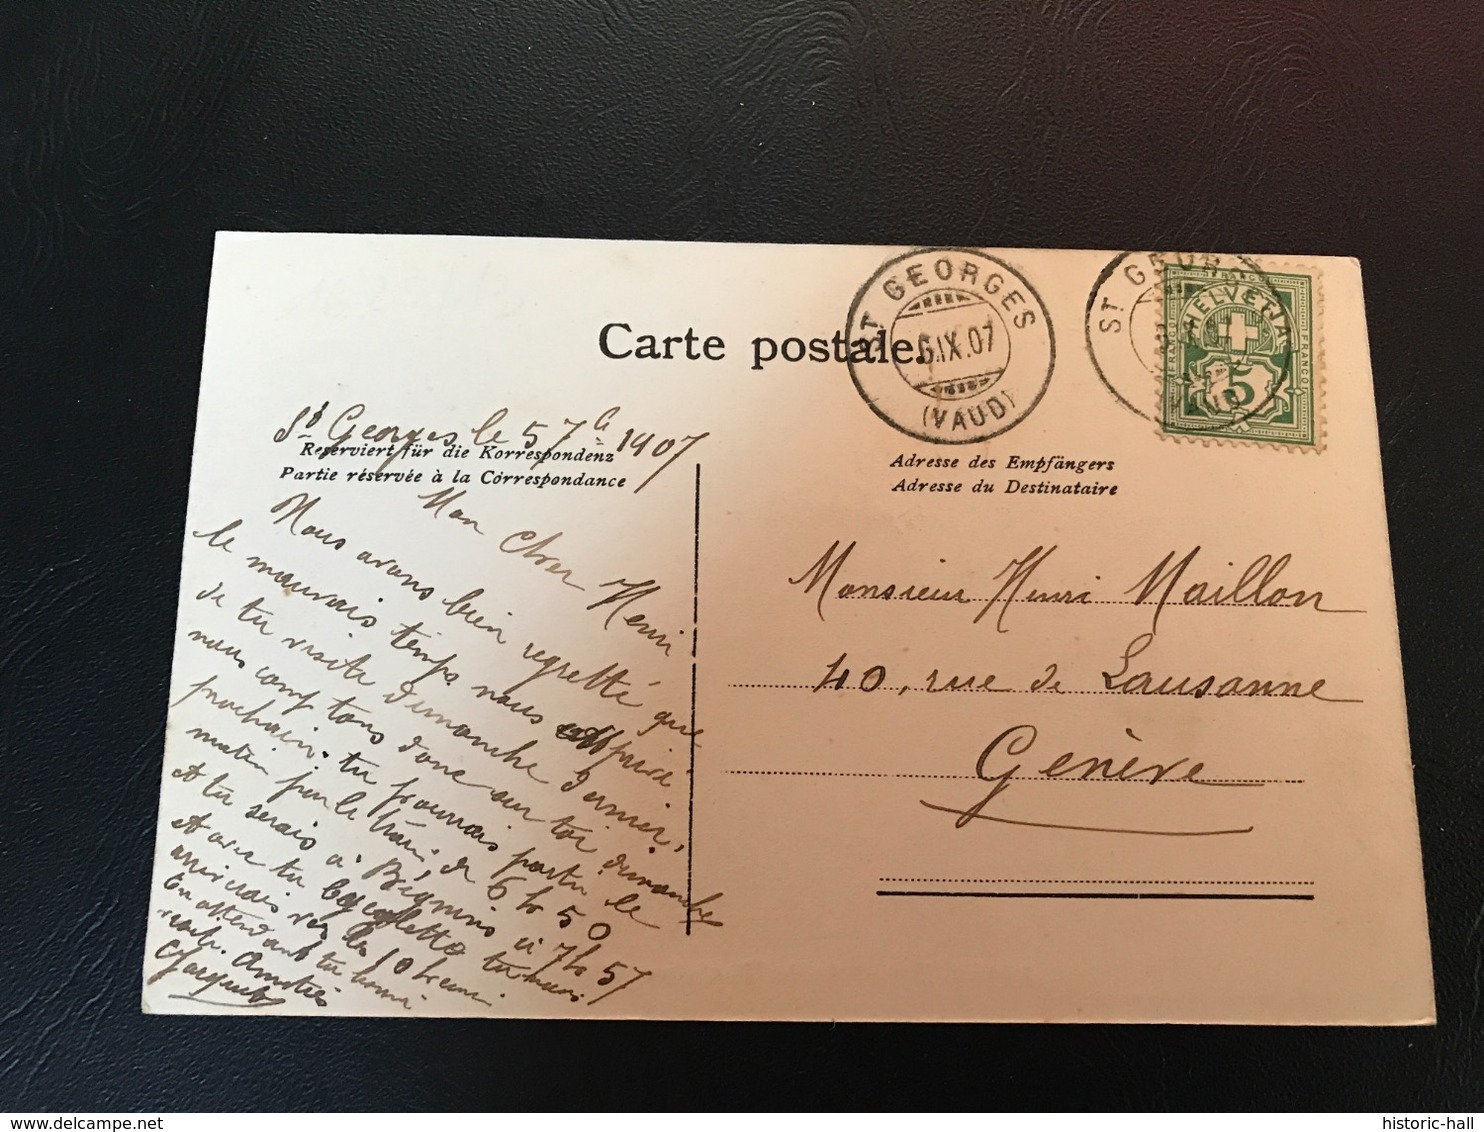 ST GEORGES
6.IX.07
(VAUD)
ST GEORG
FRANCO
HELVETIA
FRANCO
FRANCO
5
Carte postale.
St Georges le 5 7bre 1907
Reserviert für die Korrespondenz
Partie réservée à la Correspondance
Adresse des Empfängers
Adresse du Destinataire
Mon cher Henri
Nous avons bien regretté que
le mauvais temps nous privé
de ta visite dimanche dernier,
nous comptons donc sur toi dimanche
prochain. tu pourrais partir le
matin par le train de 6 h 50
tu serais à Bégnins à 7 h 57
Avec ta tu
arriverais vers les 10 heures
En attendant
Monsieur Henri Maillon
40, rue de Lausanne
Genève
delcampe.net
historic-hall